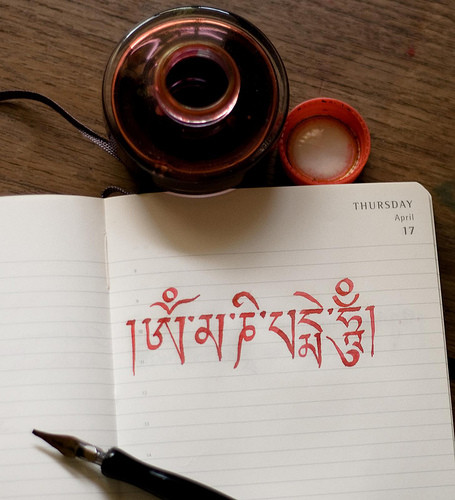 THURSDAY
April
17
།ༀ་མ་ཎི་པདྨེ་ཧཱུྃ།